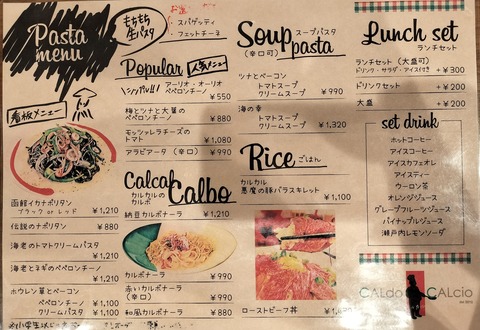 Pasta
menu
看板メニュー
函館イカナポリタン
ブラック or レッド ¥1,210
伝説のナポリタン ¥880
海老のトマトクリームパスタ
¥1,210
海老とネギのペペロンチーノ
¥1,210
ホウレン草とベーコン
ペペロンチーノ ¥1,100
クリームパスタ ¥1,100
もちもち
生パスタ
・スパゲッティ
・フェットチーネ
Popular 人気メニュー
アーリオ・オーリオ
ペペロンチーノ ¥550
梅とツナと大葉の
ペペロンチーノ ¥880
モッツァレラチーズの
トマト ¥1,080
アラビアータ（辛口） ¥990
カルカルの
カルボ
Calbo
納豆カルボナーラ ¥1,210
カルボナーラ ¥990
赤いカルボナーラ
（辛口） ¥990
和風カルボナーラ ¥880
Soup スープパスタ
（辛口可） pasta
ツナとベーコン
トマトスープ
クリームスープ ¥990
海の幸
トマトスープ
クリームスープ ¥1,320
Rice ごはん
カルカル
悪魔の豚バラスキレット
¥1,100
ローストビーフ丼 ¥1,630
Lunch set
ランチセット
ランチセット（大盛可）
ドリンク・サラダ・アイス付き +¥300
ドリンクセット +¥200
大盛 +¥200
set drink
ホットコーヒー
アイスコーヒー
アイスカフェオレ
アイスティー
ウーロン茶
オレンジジュース
グレープフルーツジュース
パイナップルジュース
瀬戸内レモンソーダ
CALdo CALcio